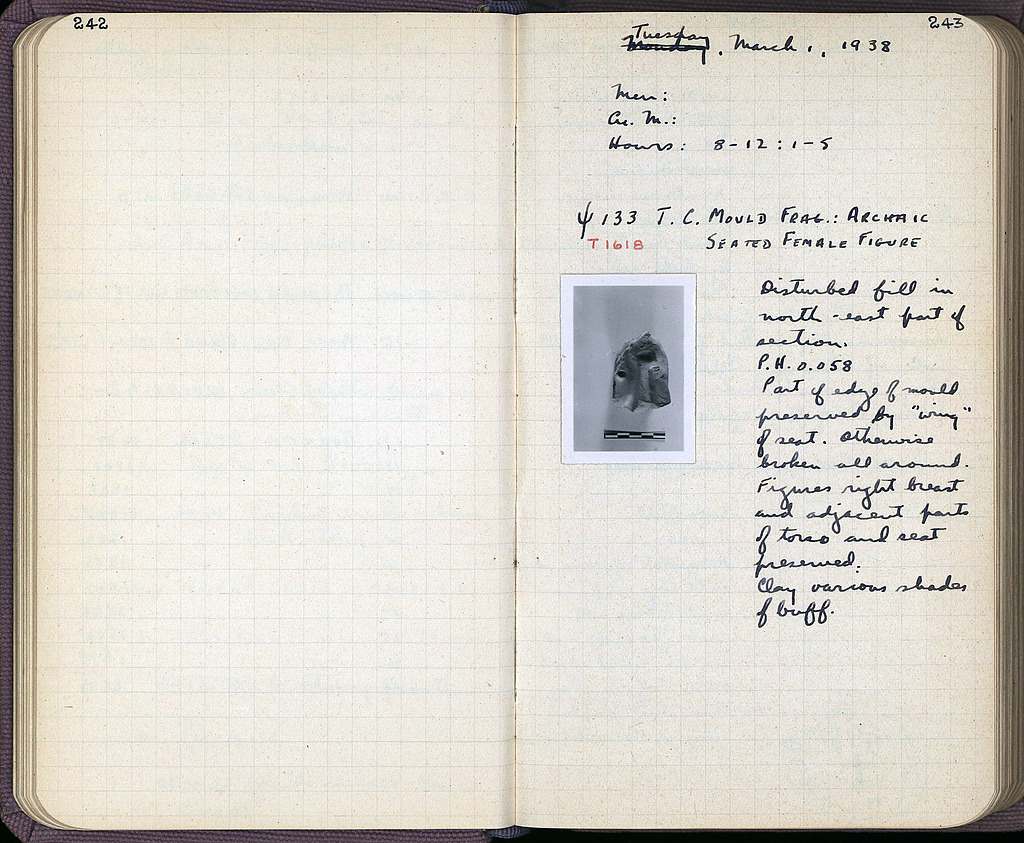 242
243
Tuesday
Monday, March 1, 1938
Men:
Cu. M.:
Hours: 8-12 : 1-5
ψ 133 T. C. MOULD FRAG.: ARCHAIC
T 1618 SEATED FEMALE FIGURE
Disturbed fill in
north-east part of
section.
P.H. 0.058
Part of edge of mould
preserved by "wing"
of seat. Otherwise
broken all around.
Figures right breast
and adjacent parts
of torso and seat
preserved.
Clay various shades
of buff.